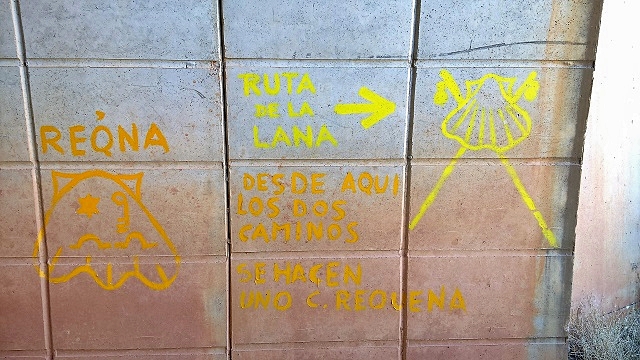 REQNA
RUTA
DE LA
LANA
DESDE AQUI
LOS DOS
CAMINOS
SE HACEN
UNO C. REQUENA